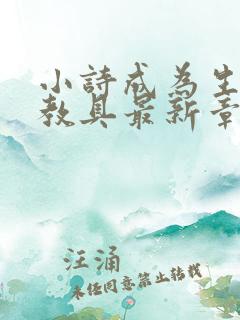 小詩成為生
教具最新章
汪涌
未经同意禁止转载